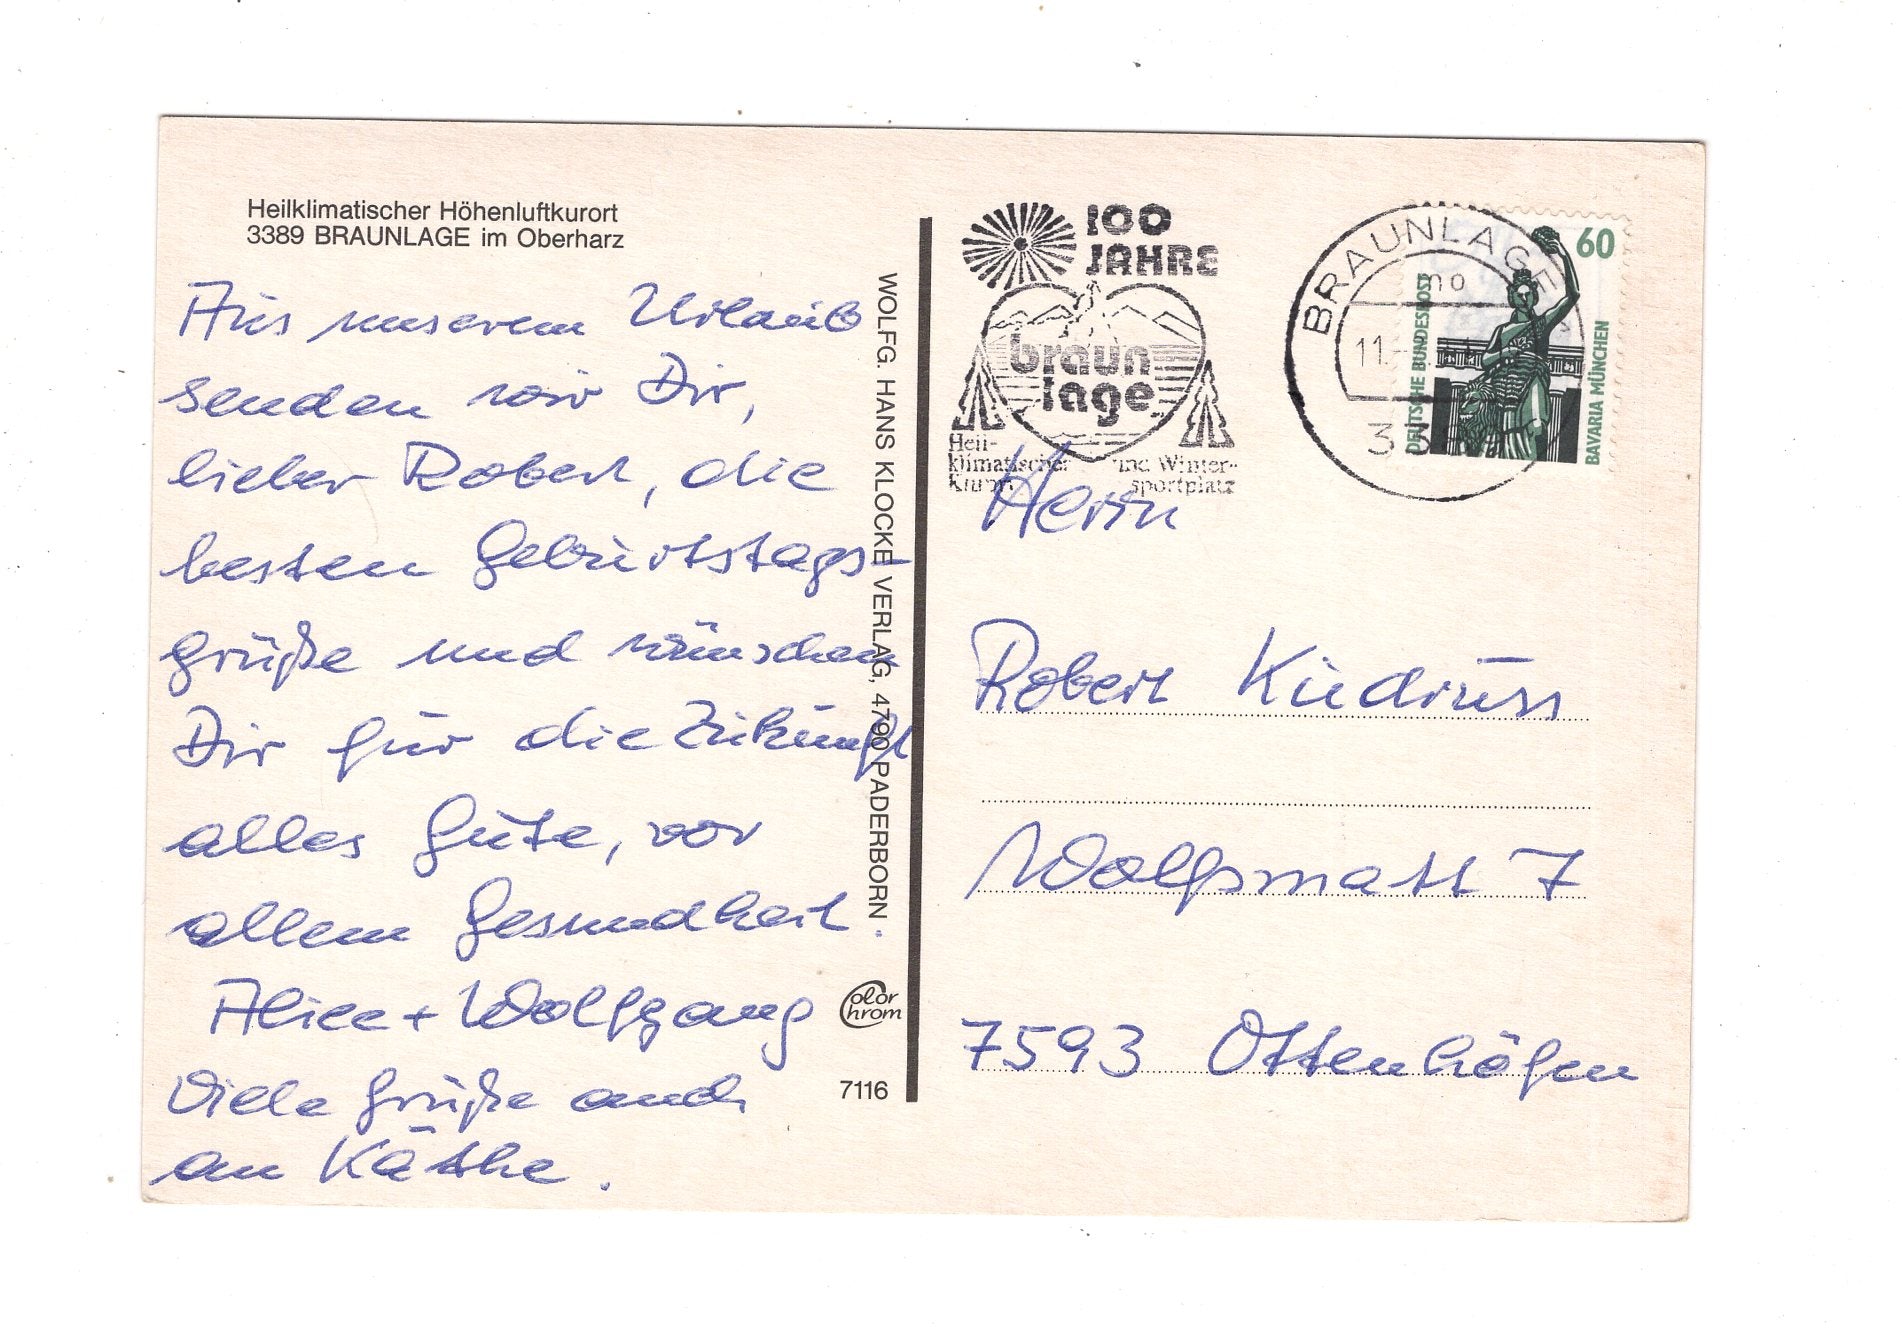 Heilklimatischer Höhenluftkurort
3389 BRAUNLAGE im Oberharz
Aus unserem Urlaub
senden wir Dir,
lieber Robert, die
besten Geburtstags-
grüße und wünschen
Dir für die Zukunft
alles Gute, vor
allem Gesundheit.
Alice + Wolfgang
Viele Grüße auch
an Käthe.
WOLFG. HANS KLOCKE VERLAG, 4790 PADERBORN
Color
Chrom
7116
100
JAHRE
braun
lage
Heil-
klimatischer
Kurort
und Winter-
sportplatz
BRAUNLAGE
mo
11.
60
DEUTSCHE BUNDESPOST
BAVARIA MÜNCHEN
Herrn
Robert
Wolfsmatt 7
7593 Ottenhöfen